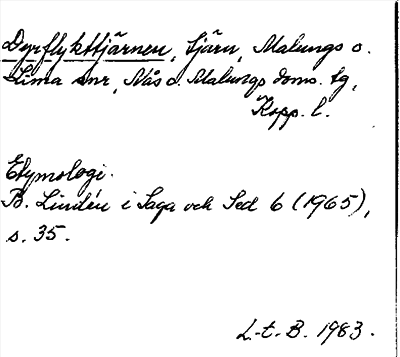 Dyrflykttjärnen, tjärn, Malungs o.
Lima snr, Nås o. Malungs doms. tg,
Kopp. l.
Etymologi.
B. Lindén i Saga och Sed 6 (1965),
s. 35.
L.-t. B. 1983.